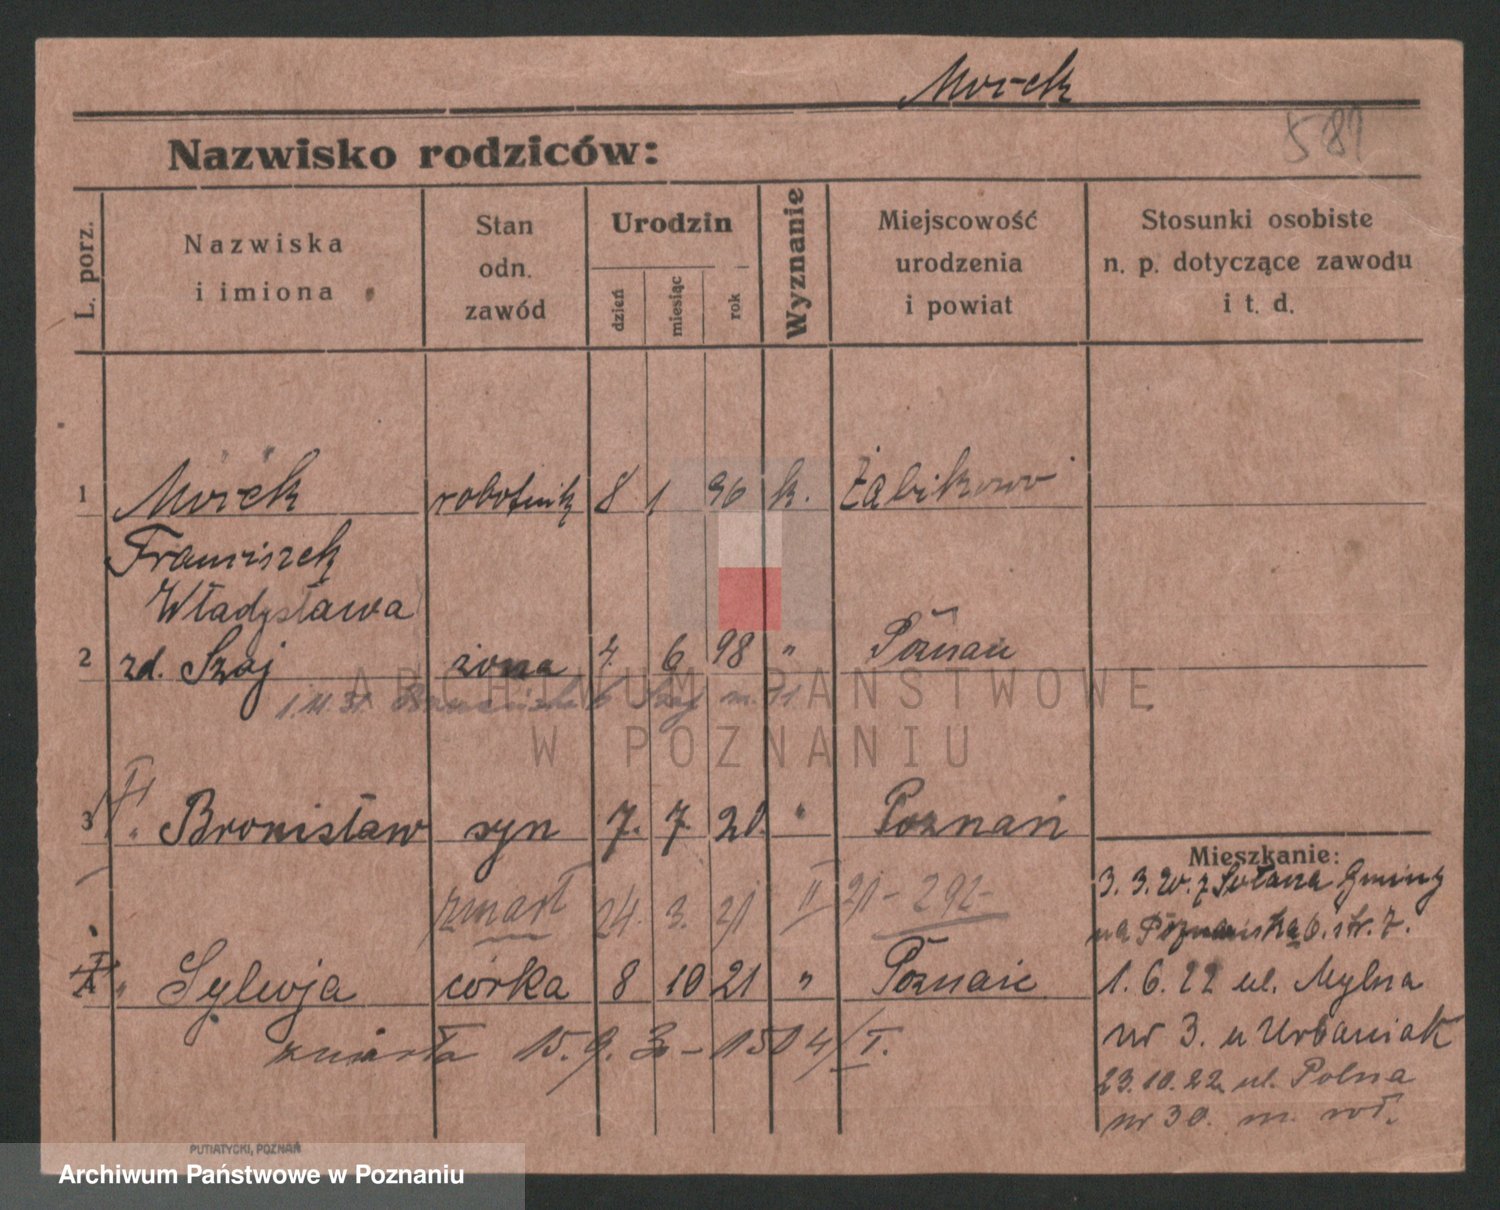 Morek
581
Nazwisko rodziców:
L. porz.
Nazwiska i imiona
Stan odn. zawód
Urodzin
dzień
miesiąc
rok
Wyznanie
Miejscowość urodzenia i powiat
Stosunki osobiste n. p. dotyczące zawodu i t. d.
1 Morek robotnik 8 1 96 k. Żabikowo
Franciszek
Władysława
2 zd. Szaj żona 4. 6 98 " Poznań
1.11.31. Szaj m. 31
3 " Bronisław syn 7. 7. 20. " Poznań
zmarł 24. 3. 21 II 21 - 292 -
" Sylwja córka 8 10 21 " Poznań
zmarła 15. 9. 30 - 1504/I.
Mieszkanie:
3. 3. 20. z Sołacza Gminy
na Poznańska 6. str. 7.
1. 6. 22 ul. Mylna
nr 3. u Urbaniak
23.10.22 ul. Polna
nr 30. m. wł.
PUTIATYCKI, POZNAŃ
ARCHIWUM PAŃSTWOWE
W POZNANIU
Archiwum Państwowe w Poznaniu